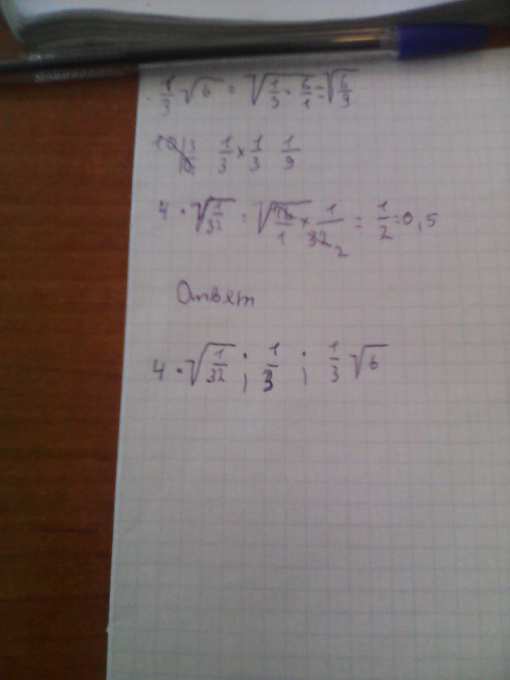 1/3 √6 = √(1/9 · 6/1) = √(6/9)
1/3 × 1/3 1/9
4 · √(1/32) = √(16/1 × 1/32) 2 = 1/2 = 0,5
Ответ
4 · √(1/32) ; 1/3 ; 1/3 √6